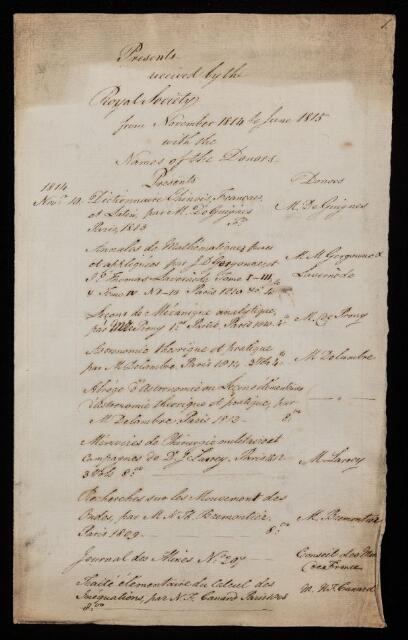 Presents
received by the
Royal Society
from November 1814 to June 1815
with the
Names of the Donors
1814 Presents Donors
Novr. 10. Dictionnaire Chinois, Français,
et Latin, par M. De Guignes M. De Guignes
Paris 1813 Fo.
Annales de Mathematiques pures
et appliquées par J. D. Gergonne et M. M. Gergonne &
J. E. Thomas Lavernède Tome I-III Lavernède
& Tome IV No. 1- Paris 1810 &c 4to
Leçons de Mécanique analytique,
par M. de Prony 1e. Partie, Paris 1810. 4o M. De Prony
Astronomie théorique et pratique
par M. Delambre, Paris 1814 3 Vols 4o M. Delambre
Abrégé d'Astronomie ou Leçons élémentaires
d'Astronomie théorique et pratique, par
M. Delambre Paris 1813 - 8vo
Mémoires de Chirurgie militaire et
Campagnes de D. J. Larrey, Paris 1812 M. Larrey
3 Vols 8vo
Recherches sur le Mouvement des
Ondes, par M. N. Th. Bremontier, M. Bremontier
Paris 1809 - 8vo
Journal des Mines No. 207 Conseil des Mines
de France
Traité élémentaire du Calcul des
Inéquations, par N. F. Canard Paris 1808 M. N. F. Canard
8vo